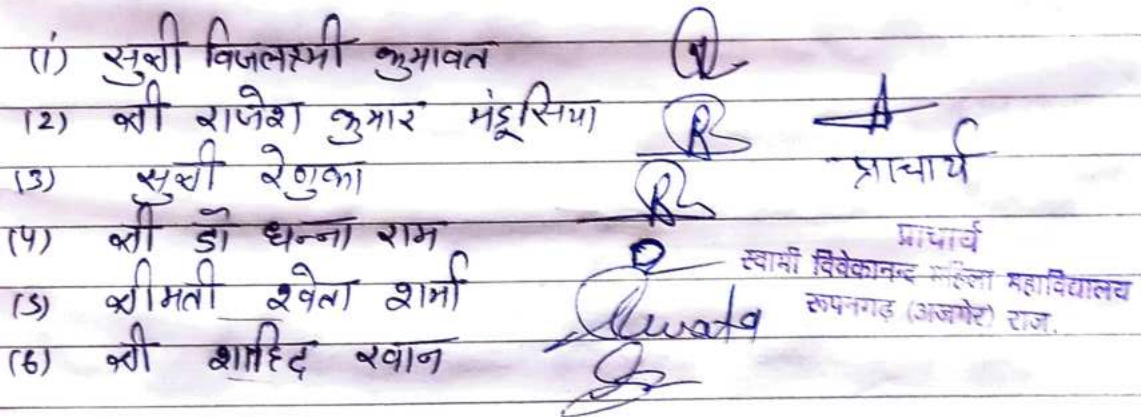 (1) सुश्री विजलक्ष्मी कुमावत
(2) श्री राजेश कुमार मंडूसिया
(3) सुश्री रेणुका
(4) श्री डॉ धन्ना राम
(5) श्रीमती श्वेता शर्मा
(6) श्री शाहिद खान
प्राचार्य
प्राचार्य
स्वामी विवेकानन्द महिला महाविद्यालय
रूपनगढ़ (अजमेर) राज.